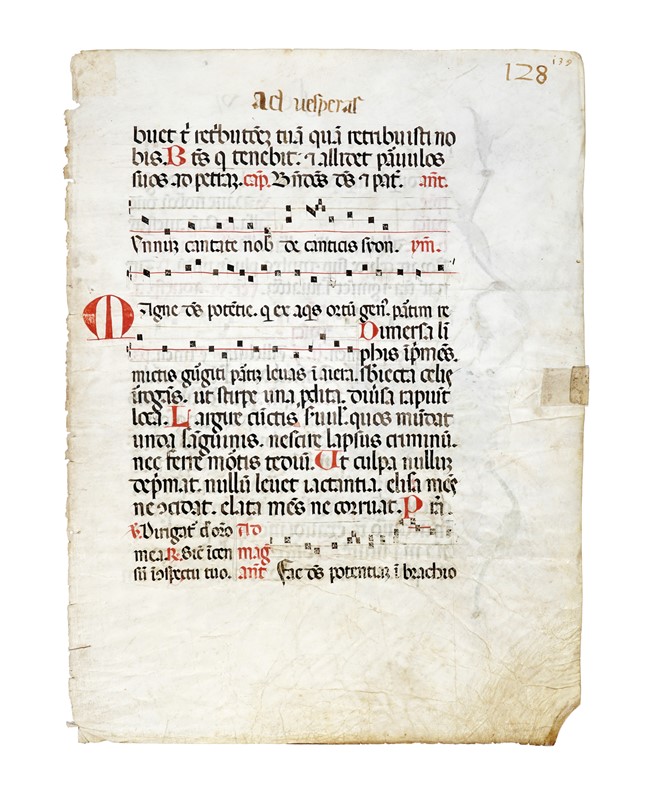 128
139
ad uesperas
buet t' ret'butoēz tuā quā retribuisti no
bis. B t̄s q tenebit: ⁊ allidet paruulos
suos ad petrā. cap̄. Bn̄dc̄s d̄s ⁊ pat̄. ant̄.
ymnum cantate nob' de canticis syon. ym̄.
Magne d̄s potētie. q ex aq̄s ortū gen̄. partim re
Dimersa li
mittis gurgiti partī leuas ī aera.
phis īpmēs.
sbiecta celis
īrogās. ut stirpe una ꝓdita. diuisa rapiāt
loca. Largire cūctis s'uul'. quos mūdat
unda sāguinis. nescire lapsus criminū.
nec ferre mōtis tediū. Ut culpa nullum
dep̄mat. nullū leuet iactantia. elisa mēs
ne ꝯcidat. elata mēs ne corruat. P r̄.
v. Dirigat' d' oro Ad
mea R. Sic' īcen mag
sū ī ꝯspectu tuo. ant̄ Fac d̄s potentiā ī brachio